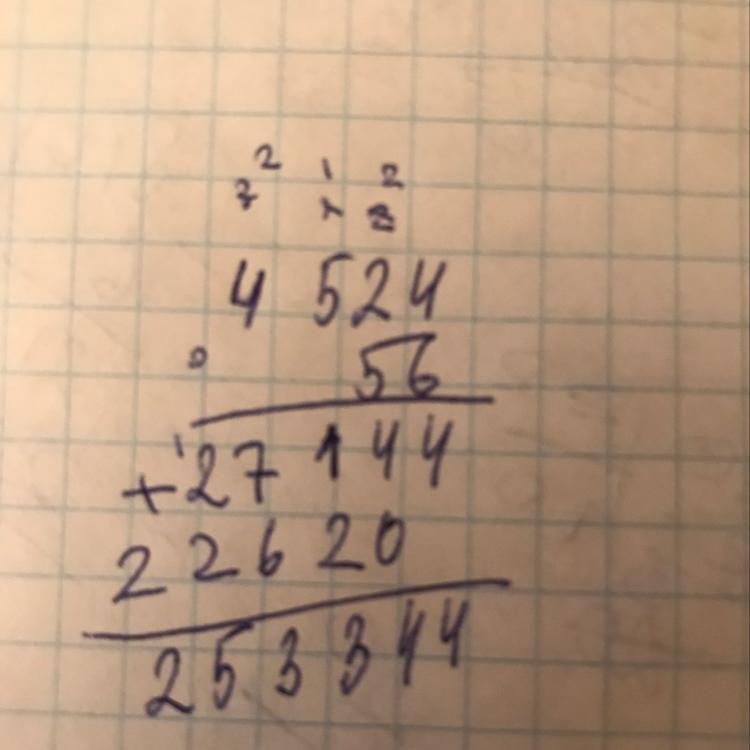 2 1 2
4 524
56
1
+27 144
22620
253344